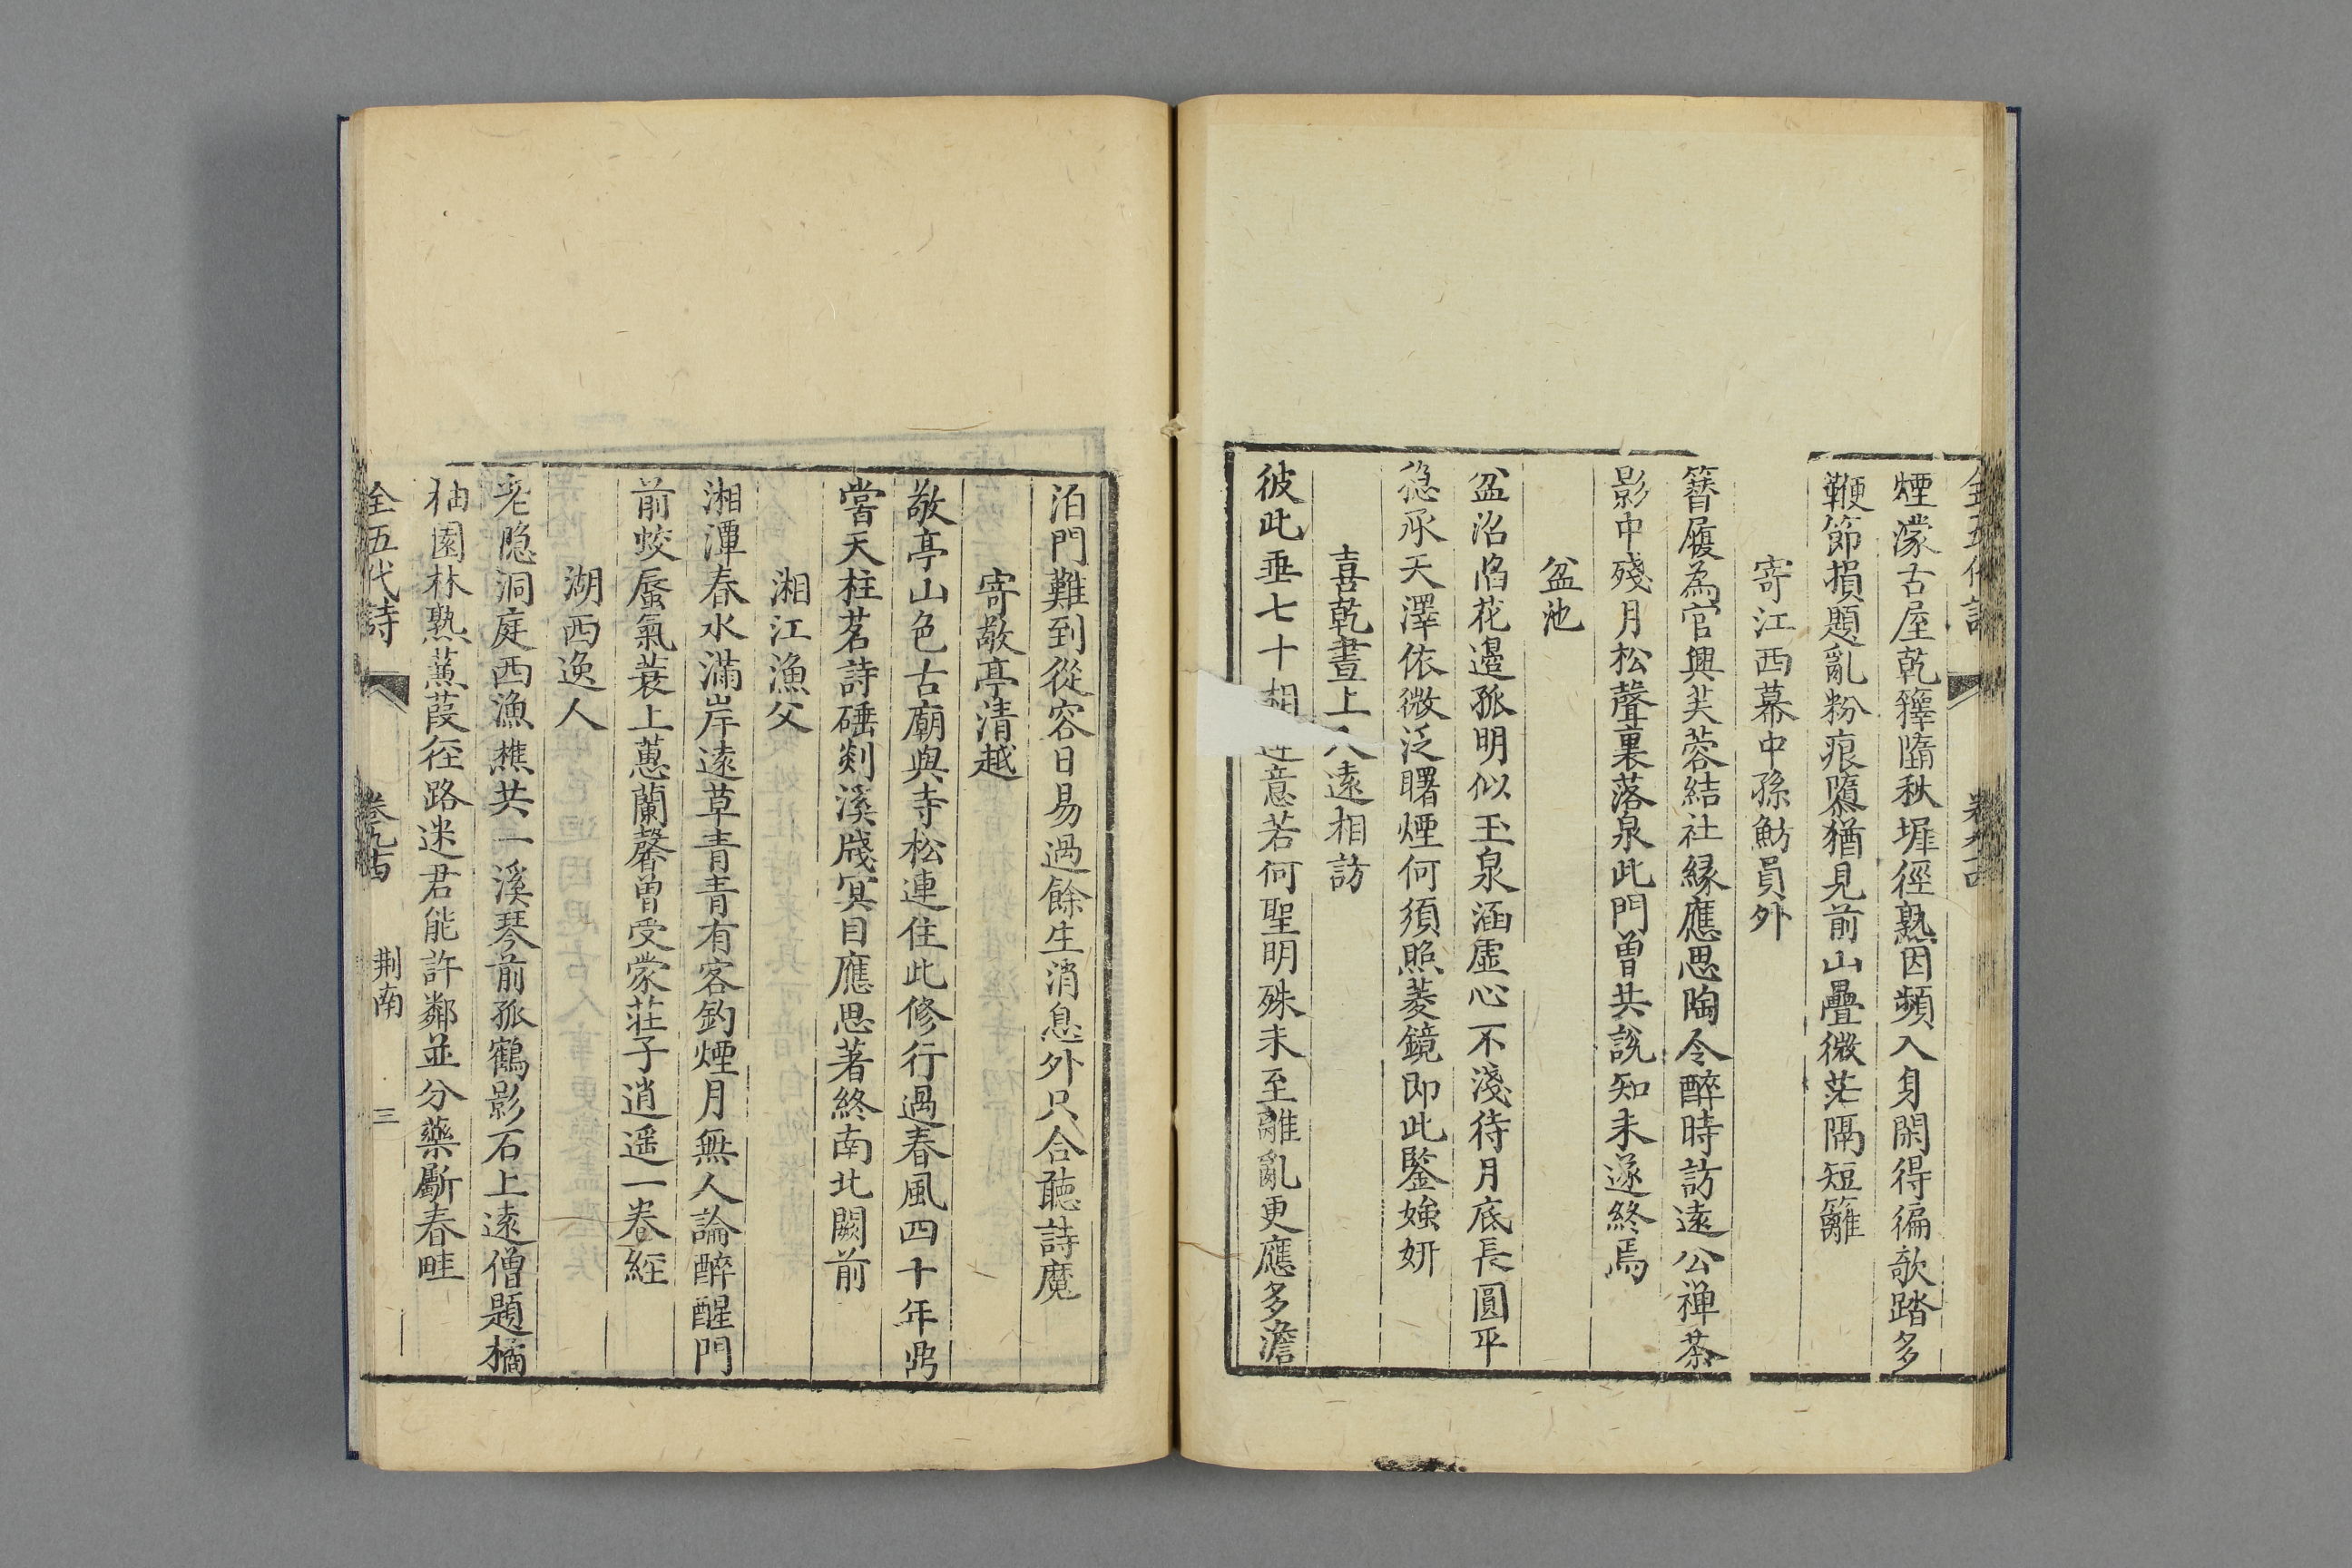 煙濛古屋乾籜隋秋墀徑熟因頻入身閑得徧欹踏多
鞭節損題亂粉痕隳猶見前山疊微茫隔短籬
寄江西幕中孫魴員外
簪履為官興芙蓉結社縁應思陶令醉時訪遠公禅茶
影中殘月松聲裏落泉此門曽共説知未遂終焉
盆池
盆沼陷花邉孤明似玉泉涵虛心不淺待月底長圓平
穏承天澤依微泛曙煙何須照菱鏡即此鑒媸妍
喜乾晝上人遠相訪
彼此垂七十相意若何聖明殊未至離亂更應多澹
泊門難到從容日易過餘生消息外只合聴詩魔
寄敬亭清越
敬亭山色古廟與寺松連住此修行過春風四十年鼎
嘗天柱茗詩硾剡溪牋冥目應思著終南北闕前
湘江漁父
湘潭春水滿岸遠草青青有客釣煙月無人論醉醒門
前蛟蜃氣蓑上蕙蘭馨曽受蒙莊子逍遥一卷經
湖西逸人
老隐洞庭西漁樵共一溪琴前孤鶴影石上遠僧題橘
柚園林熟蒹葭徑路迷君能許鄰並分藥斸春畦
全五代詩 卷九十四 荆南 三